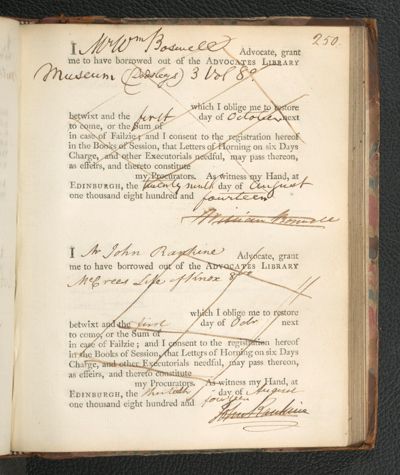 250.
I Mr Wm Boswell Advocate, grant
me to have borrowed out of the ADVOCATES LIBRARY
Museum (Dodsleys) 3 Vol 8o
which I oblige me to restore
betwixt and the first day of October next
to come, or the Sum of
in case of Failzie; and I consent to the registration hereof
in the Books of Session, that Letters of Horning on six Days
Charge, and other Executorials needful, may pass thereon,
as effeirs, and thereto constitute
my Procurators. As witness my Hand, at
EDINBURGH, the twenty ninth day of August
one thousand eight hundred and fourteen
William Boswell
I Mr John Rankine Advocate, grant
me to have borrowed out of the ADVOCATES LIBRARY
McCrees Life of Knox 8vo
which I oblige me to restore
betwixt and the first day of Octr next
to come, or the Sum of
in case of Failzie; and I consent to the registration hereof
in the Books of Session, that Letters of Horning on six Days
Charge, and other Executorials needful, may pass thereon,
as effeirs, and thereto constitute
my Procurators. As witness my Hand, at
EDINBURGH, the thirtieth day of August
one thousand eight hundred and fourteen
John Rankine